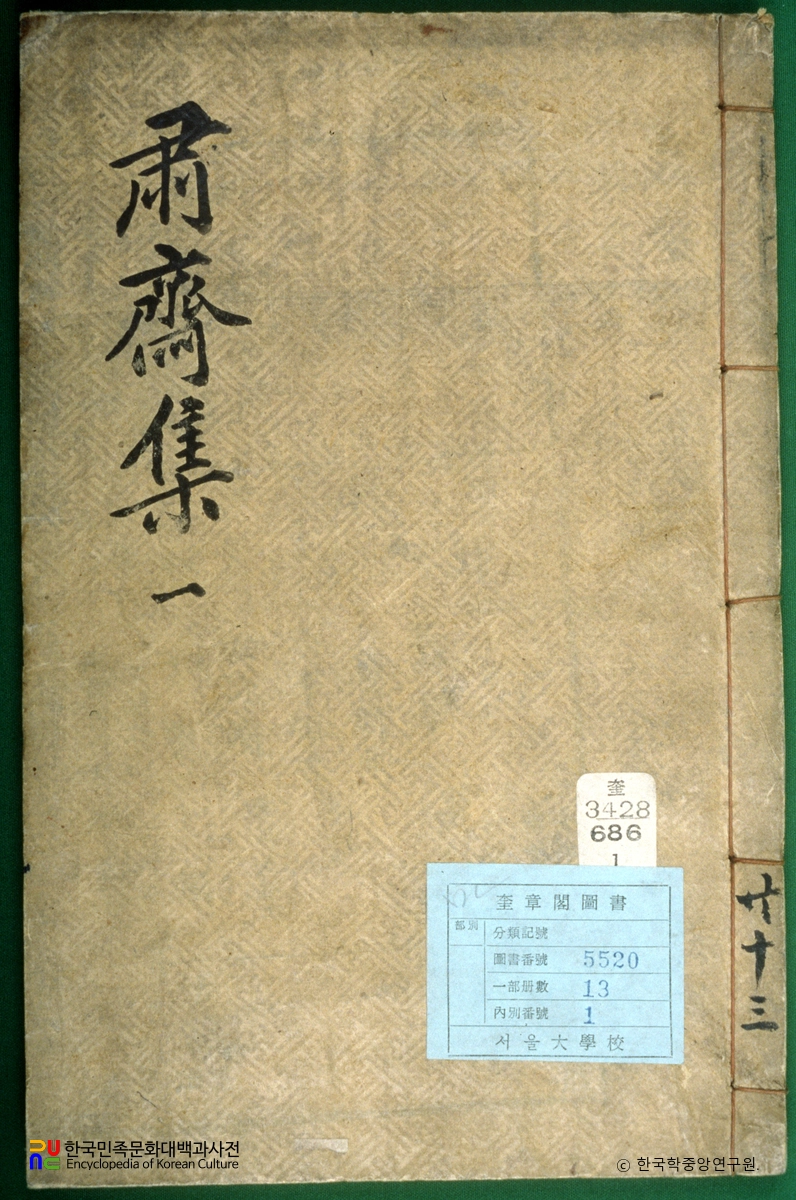 肅齋集 一
共十三
奎
3428
686
1
奎章閣圖書
部別
分類記號
圖書番號 5520
一部册數 13
內別番號 1
서울大學校
한국민족문화대백과사전
Encyclopedia of Korean Culture
© 한국학중앙연구원.